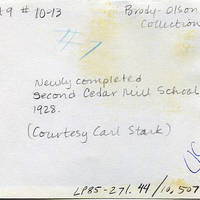 #9 # 10-13
Brody-Olson
Collection
#7
Newly completed
Second Cedar Mill School
1928.
(Courtesy Carl Stark)
LP85-271.44/10,507